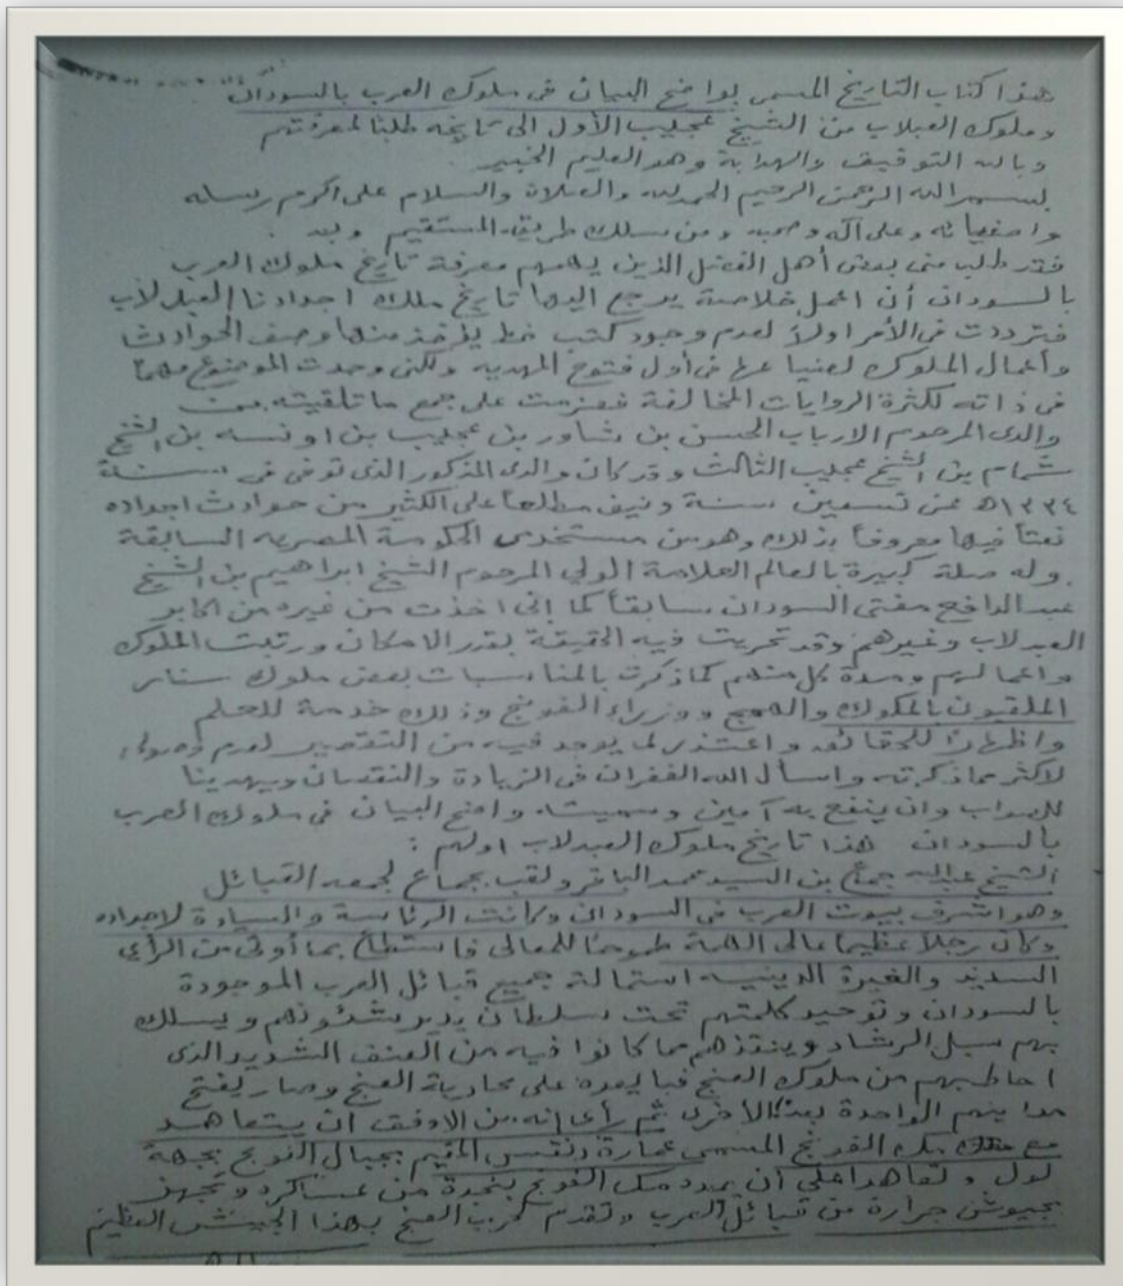 هذا كتاب التاريخ المسمى بواضح البيان فى ملوك العرب بالسودان
وملوك العبدلاب من الشيخ عجيب الأول الى تاريخه طلبا لمعرفتهم
وبالله التوفيق والهداية وهو العليم الخبير
بسم الله الرحمن الرحيم الحمد لله والصلاة والسلام على اكرم رسله
واصفيائه وعلى آله وصحبه ومن سلك طريقه المستقيم وبعد .
فقد طلب منى بعض أهل الفضل الذين يهمهم معرفة تاريخ ملوك العرب
بالسودان أن اعمل خلاصة يرجع اليها تاريخ ملك اجدادنا العبدلاب
فترددت فى الأمر اولاً لعدم وجود كتب خط يؤخذ منها وصف الحوادث
وأعمال الملوك لضياعها فى أول فتوح المهديه ولكنى وجدت الموضوع مهماً
فى ذاته لكثرة الروايات المخالفة فعزمت على جمع ما تلقيته من
والدى المرحوم الارباب الحسن بن شاور بن عجيب بن اونسه بن الشيخ
شمام بن الشيخ عجيب الثالث وقد كان والدى المذكور الذى توفى فى سنة
١٣٣٤ه عن تسعين سنة ونيف مطلعاً على الكثير من حوادث اجداده
ثقتاً فيها معروفاً بذلك وهو من مستخدمى الحكومة المصريه السابقة
وله صلة كبيرة بالعالم العلامة الولي المرحوم الشيخ ابراهيم بن الشيخ
عبد الدافع مفتى السودان سابقاً كما إنى اخذت من غيره من اكابر
العبدلاب وغيرهم وقد تحريت فيه الحقيقة بقدر الامكان ورتبت الملوك
واعمالهم ومدة كل منهم كما ذكرت بالمناسبات بعض ملوك سنار
الملقبون بالمكوك والهمج ووزراء الفونج وذلك خدمة للعلم
واظهاراً للحقائق واعتذر لما يوجد فيه من التقصير لعدم وصولى
لاكثر مما ذكرته واسأل الله الغفران فى الزيادة والنقصان ويهدينا
للصواب وان ينفع به آمين وسميته واضح البيان فى ملوك العرب
بالسودان هذا تاريخ ملوك العبدلاب اولهم :
الشيخ عبدالله جماع بن السيد محمد الباقر ولقب بجماع لجمعه القبائل
وهو اشرف بيوت العرب فى السودان وكانت الرئاسة والسيادة لاجداده
وكان رجلاً عظيماً عالى الهمة طموحاً للمعالى فاستطاع بما أوتى من الرأى
السديد والغيرة الدينيه استمالة جميع قبائل العرب الموجودة
بالسودان وتوحيد كلمتهم تحت سلطان يدير شئونهم ويسلك
بهم سبل الرشاد وينقذهم مما كانوا فيه من العنف الشديد الذى
احاط بهم من ملوك العنج فبايعوه على محاربة العنج وصار يفتح
مداينهم الواحدة بعد الاخرى ثم رأى إنه من الاوفق أن يتعاهد
مع مك الفونج المسمى عمارة دنقس المقيم بجبال الفونج بجهة
لول وتعاهدا على أن يمدد مك الفونج بنجدة من عساكره وتجهز
بجيوش جرارة من قبائل العرب وتقدم لحرب العنج بهذا الجيش العظيم